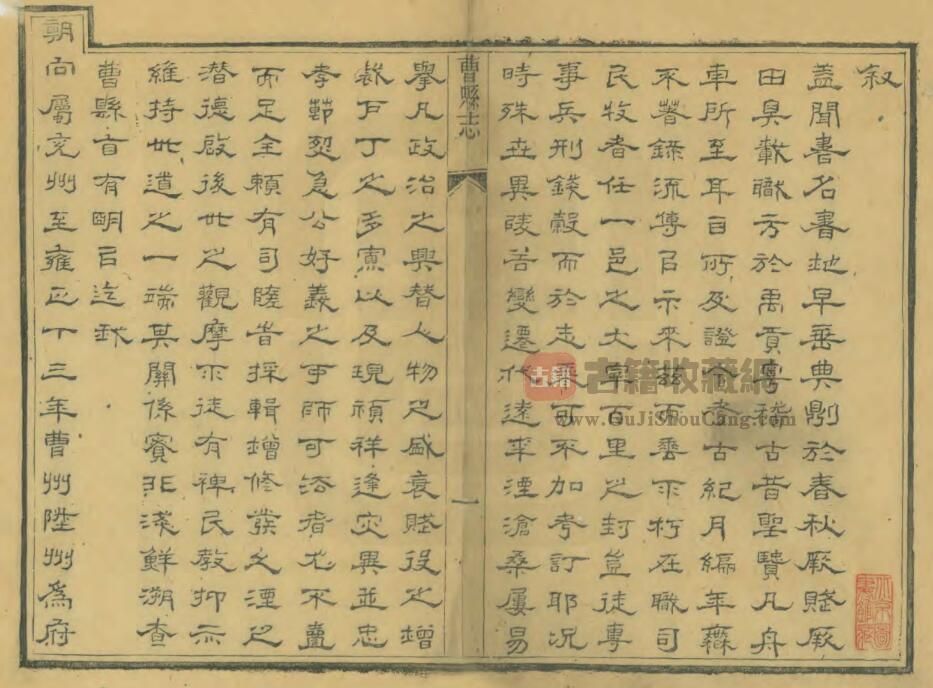 叙
蓋聞書名書地早垂典則於春秋厥賦厥
田具載職方於禹貢粵稽古昔聖賢凡舟
車所至耳目所及證今考古紀月編年靡
不著錄流傳以示來茲而垂不朽在職司
民牧者任一邑之大宰百里之封豈徒專
事兵刑錢穀而於志乘可不加考訂耶況
時殊世異陵谷變遷代遠年湮滄桑屢易
曹縣志
一
舉凡政治之興替人物之盛衰賦役之增
裁戶丁之多寡以及現禎祥逢災異並忠
孝節烈急公好義之可師可法者尤不壹
而足全賴有司隨旹採輯增修發久湮之
潛德啟後世之觀摩不徒有裨民教抑亦
維持世道之一端其關係實非淺鮮溯查
曹縣自有明以迄我
朝向屬兗州至雍正十三年曹州陞州為府
古籍 古籍收藏網
www.GuJiShouCang.com